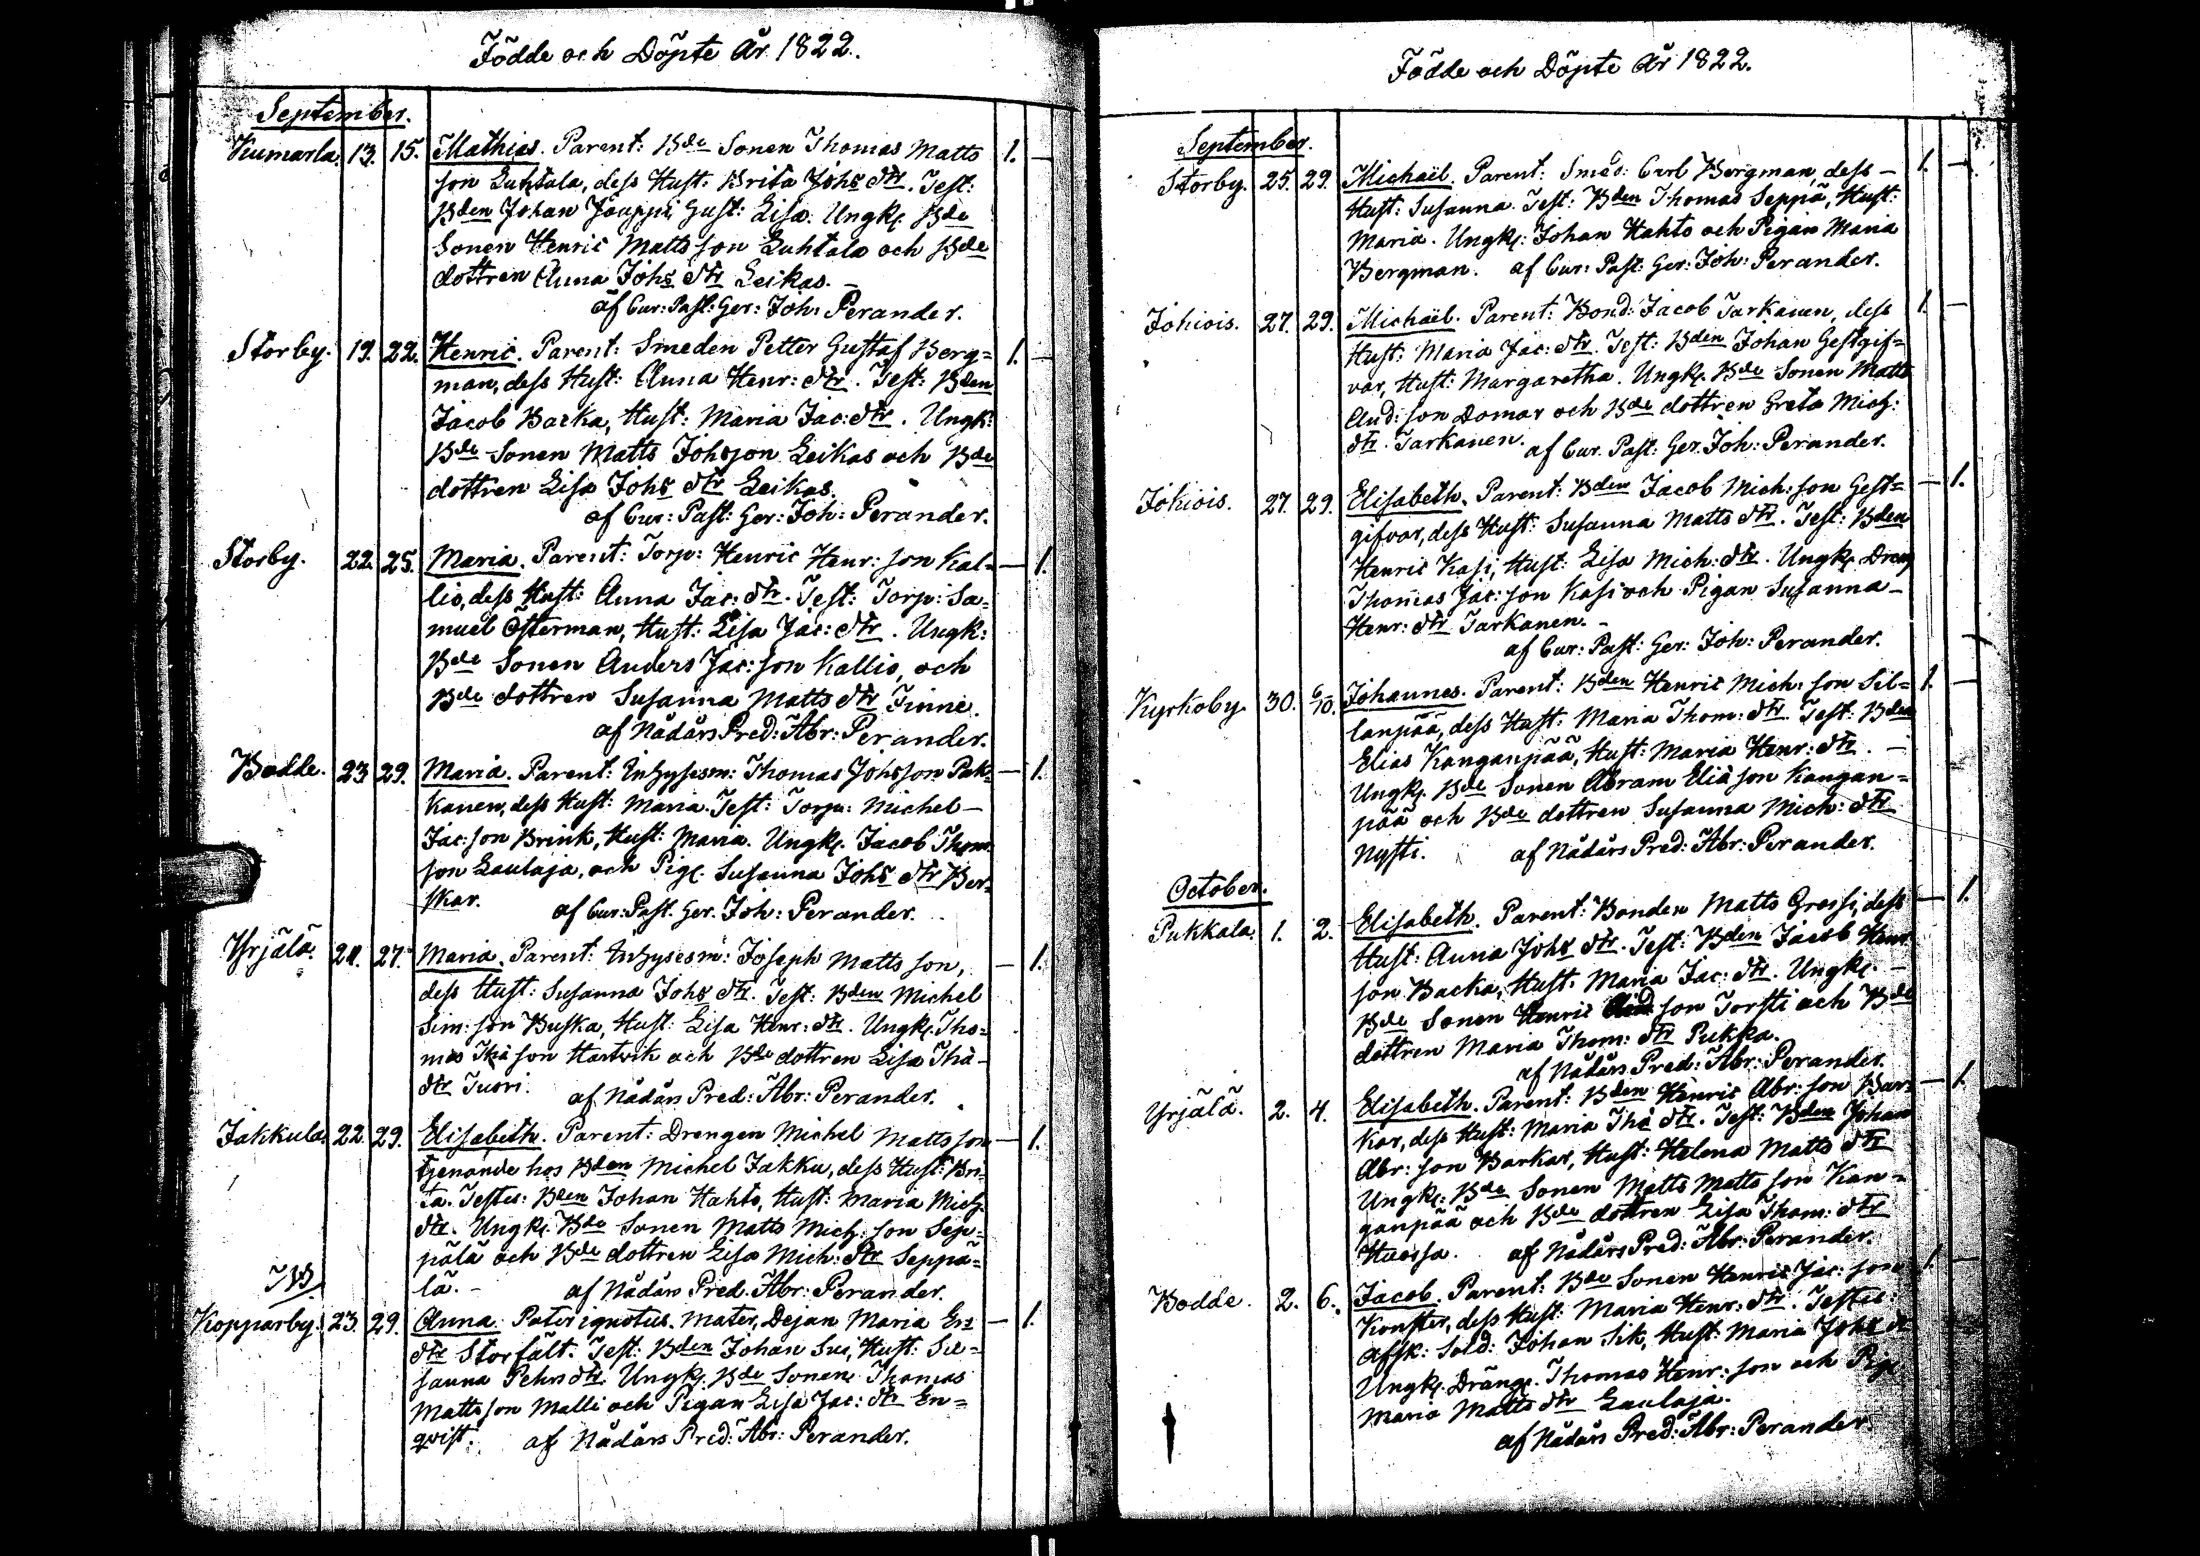 Födde och Döpte År 1822.
September.
Kumarla. 13. 15. Mathias. Parent: Bde Sonen Thomas Matts 1. —
son Luhtala, dess Hust: Brita Johs dtr. Test:
Bden Johan Jouppi Hust: Lisa. Ungk. Bde
Sonen Henric Matts son Luhtala och Bde
dottren Anna Johs dtr Leikas. —
af Cur: Past: Ger: Joh: Perander.
Storby. 19. 22. Henric. Parent: Smeden Petter Gustaf Berg= 1. —
man, dess Hust: Anna Henr: dtr. Test: Bden
Jacob Backa, Hust: Maria Jac: dtr. Ungk:
Bde Sonen Matts Johsson Leikas och Bde
dottren Lisa Johs dtr Leikas.
af Cur: Past: Ger: Joh: Perander.
Storby. 22. 25. Maria. Parent: Torp: Henric Henr: son Kal= — 1.
lio, dess Hust: Anna Jac: dtr. Test: Torp: Sa=
muel Österman, Hust: Lisa Jac: dtr. Ungk:
Bde Sonen Anders Jac: son Kallio, och
Bde dottren Susanna Matts dtr Finne.
af Nådårs Pred: Abr: Perander.
Bodde. 23 29. Maria. Parent: Inhysesm: Thomas Johsson Pak= — 1.
kanen, dess Hust: Maria. Test: Torp: Michel —
Jac: son Brink, Hust: Maria. Ungk. Jacob Thom:
son Laulaja, och Pig. Susanna Johs dtr Ber=
skar.
af Cur: Past. Ger. Joh: Perander.
Yrjälä. 24. 27. Maria. Parent: Inhysesm: Joseph Matts son, — 1.
dess Hust: Susanna Johs dtr. Test: Bden Michel
Sim: son Buska, Hust: Lisa Henr: dtr. Ungk. Tho=
mas son Hartvik och Bde dottren Lisa Thã —
dtr Tuori. af Nådårs Pred: Abr: Perander.
Jakkula. 22. 29. Elisabeth. Parent: Drengen Michel Matts son — 1.
tjenande hos Bden Michel Jakku, dess Hust: Bri=
ta. Testes: Bden Johan Hahto, Hust: Maria Mich:
dtr. Ungk. Bde Sonen Matts Mich: son Sep=
pälä och Bde dottren Lisa Mich: dtr Seppä=
lä. — af Nådårs Pred: Abr: Perander.
Kopparby. 23. 29. Anna. Pater ignotus, Mater, Dejan Maria Er: — 1.
dtr Storfält. Test: Bden Johan Sui, Hust: Su=
sanna Pehrs dtr. Ungk. Bde Sonen Thomas
Matts son Malli och Pigan Lisa Jac: dtr En=
qvist. af Nådårs Pred: Abr: Perander.
Födde och Döpte År 1822.
September.
Storby. 25. 29. Michaël. Parent: Smed: Carl Bergman, dess — 1. —
Hust: Susanna. Test: Bden Thomas Seppä, Hust:
Maria. Ungk: Johan Hahto och Pigan Maria
Bergman. af Cur: Past: Ger: Joh: Perander.
Jokiois. 27. 29. Michaël. Parent: Bond: Jacob Tarkanen, dess 1. —
Hust: Maria Jac: dtr. Test: Bden Johan Gestgif=
var, Hust: Margaretha. Ungk. Bde Sonen Matts
And: son Domar och Bde dottren Greta Mich:
dtr. Tarkanen. af Cur. Past: Ger. Joh: Perander.
Jokiois. 27. 29. Elisabeth. Parent: Bden Jacob Mich: son Gest= — 1.
gifvar, dess Hust: Susanna Matts dtr. Test: Bden
Henric Kasi, Hust: Lisa Mich: dtr. Ungk. Dreng
Thomas Jac: son Kasi och Pigan Susanna —
Henr: dtr Tarkanen. —
af Cur: Past: Ger: Joh: Perander.
Kyrkoby. 30. 6/10. Johannes. Parent: Bden Henric Mich: son Sil= 1. —
lanpää, dess Hust: Maria Thom: dtr. Test: Bden
Elias Kanganpää, Hust: Maria Henr: dtr. —
Ungk. Bde Sonen Abram Eliä son Kangan=
pää och Bde dottren Susanna Mich: dtr
Nysti. af Nådårs Pred: Abr: Perander.
October.
Pukkala. 1. 2. Elisabeth. Parent: Bonden Matts Grossi, dess — 1.
Hust: Anna Johs dtr. Test: Bden Jacob Henr.
son Backa, Hust: Maria Jac: dtr. Ungk. —
Bde Sonen Henric And son Torsti och Bde
dottren Maria Thom: dtr Pukka.
af Nådårs Pred: Abr: Perander.
Yrjälä. 2. 4. Elisabeth. Parent: Bden Henric Abr: son Bar= — 1.
kar, dess Hust: Maria Thã dtr. Test: Bden Johan
Abr: son Barkar, Hust: Helena Matts dtr
Ungk. Bde Sonen Matts Matts son Kan=
ganpää och Bde dottren Lisa Thom: dtr
Haessa. af Nådårs Pred: Abr: Perander.
Bodde. 2. 6. Jacob. Parent: Bde Sonen Henric Jac: son 1. —
Konster, dess Hust: Maria Henr: dtr. Testes:
afsk: Sold: Johan Sik, Hust: Maria Johs d
Ungk. Dräng. Thomas Henr: son och Pig.
Maria Matts dtr Laulaja.
af Nådårs Pred: Abr: Perander.